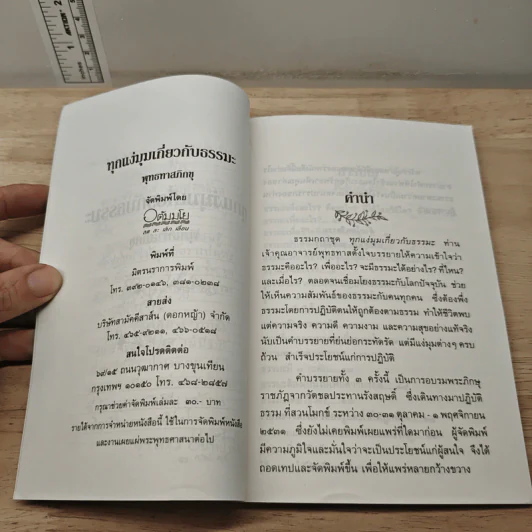 ทุกแง่มุมเกี่ยวกับธรรมะ
พุทธทาสภิกขุ
จัดพิมพ์โดย
พิมพ์ที่
มิตรนราการพิมพ์
โทร. ๓๙๒-๐๑๔๖, ๓๘๑-๐๒๓๘
สายส่ง
บริษัทสามัคคีสาส์น (ดอกหญ้า) จำกัด
โทร. ๔๖๕-๙๒๑๑, ๔๖๖-๐๕๑๘
สนใจโปรดติดต่อ
๖๙/๑๕ ถนนวุฒากาศ บางขุนเทียน
กรุงเทพฯ ๑๐๑๕๐ โทร. ๔๖๘-๒๘๕๗
กรุณาช่วยค่าจัดพิมพ์เล่มละ ๓๐.- บาท
รายได้จากการจำหน่ายหนังสือนี้ ใช้ในการจัดพิมพ์หนังสือ
และงานเผยแผ่พระพุทธศาสนาต่อไป
คำนำ
ธรรมกถาชุด ทุกแง่มุมเกี่ยวกับธรรมะ ท่าน
เจ้าคุณอาจารย์พุทธทาสตั้งใจบรรยายให้ความเข้าใจว่า
ธรรมะคืออะไร? เพื่ออะไร? จะมีธรรมะได้อย่างไร? ที่ไหน?
และเมื่อไร? ตลอดจนเชื่อมโยงธรรมะกับโลกปัจจุบัน ช่วย
ให้เห็นความสัมพันธ์ของธรรมะกับคนทุกคน ซึ่งต้องพึ่ง
ธรรมะโดยการปฏิบัติตนให้ถูกต้องตามธรรม ทำให้ชีวิตพบ
แต่ความจริง ความดี ความงาม และความสุขอย่างแท้จริง
นับเป็นคำบรรยายที่ย่นย่อกระทัดรัด แต่มีแง่มุมต่างๆ ครบ
ถ้วน สำเร็จประโยชน์แก่การปฏิบัติ
คำบรรยายทั้ง ๓ ครั้งนี้ เป็นการอบรมพระภิกษุ
ราชภัฏจากวัดชลประทานรังสฤษดิ์ ซึ่งเดินทางมาปฏิบัติ
ธรรม ที่สวนโมกข์ ระหว่าง ๓๐-๓๑ ตุลาคม - ๑ พฤศจิกายน
๒๕๓๑ ซึ่งยังไม่เคยพิมพ์เผยแพร่ที่ใดมาก่อน ผู้จัดพิมพ์
มีความภูมิใจและมั่นใจว่าจะเป็นประโยชน์แก่ผู้สนใจ จึงได้
ถอดเทปและจัดพิมพ์ขึ้น เพื่อให้แพร่หลายกว้างขวาง